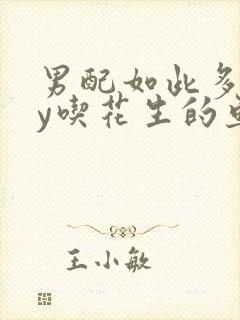 男配如此多
y喫花生的
王小敏